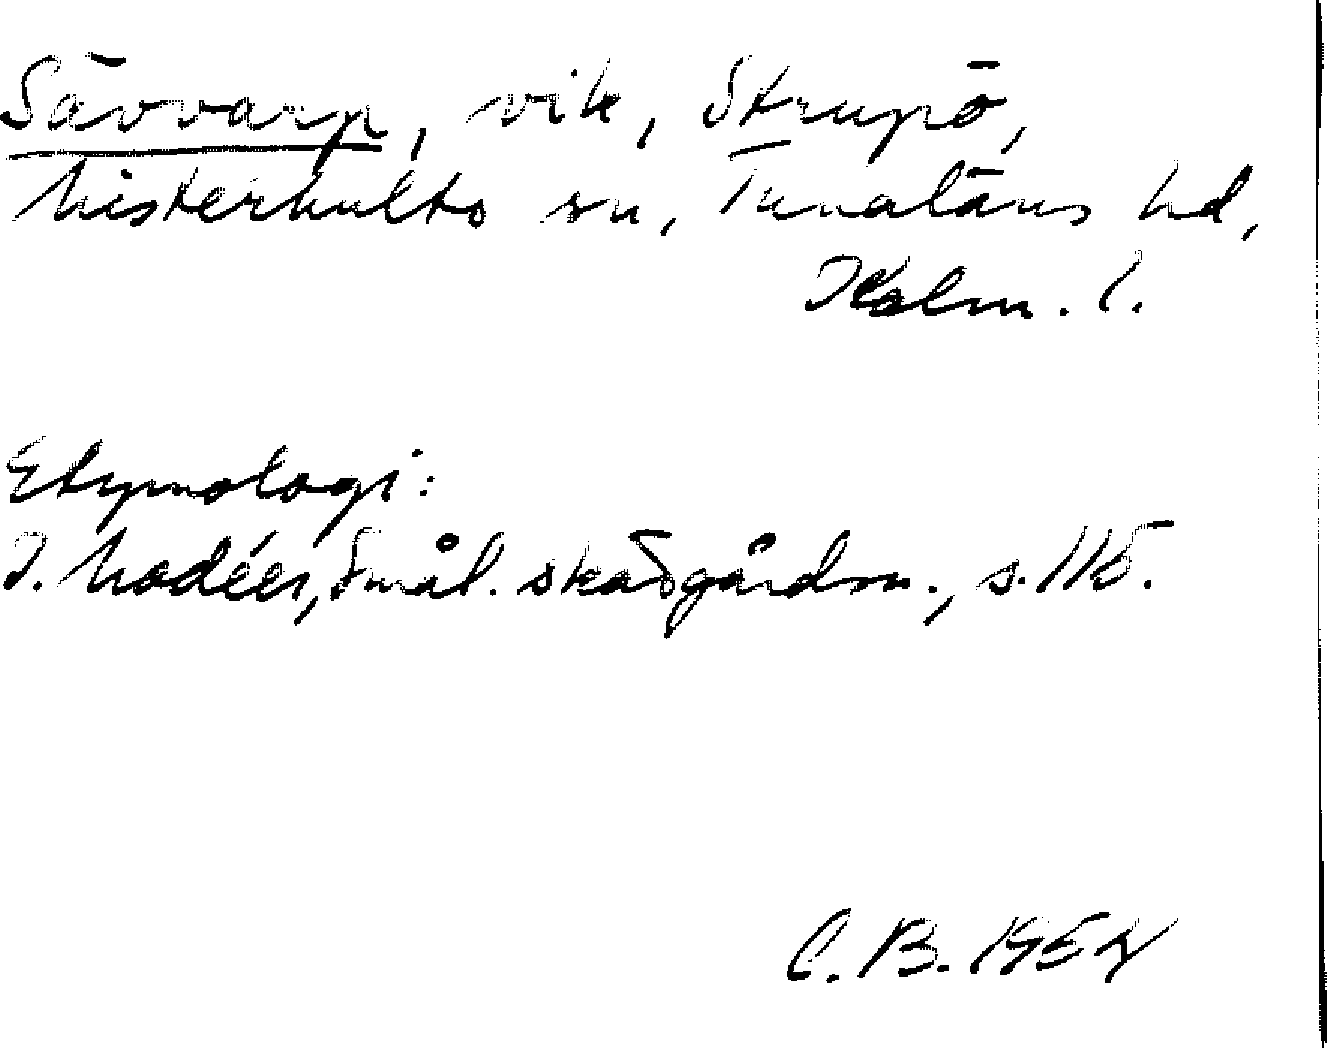 Sävvarp, vik, Strupö,
Misterhults sn, Tunaläns hd,
Kalm. l.
Etymologi:
I. Modéer, Smål. skärgårdsn., s. 115.
C. B. 1954